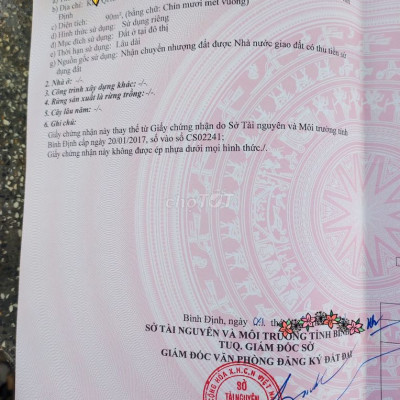 b) Địa chỉ:
Định
c) Diện tích: 90m², (bằng chữ: Chín mươi mét vuông)
d) Hình thức sử dụng: Sử dụng riêng
đ) Mục đích sử dụng: Đất ở tại đô thị
e) Thời hạn sử dụng: Lâu dài
g) Nguồn gốc sử dụng: Nhận chuyển nhượng đất được Nhà nước giao đất có thu tiền sử
dụng đất
2. Nhà ở: -/-.
3. Công trình xây dựng khác: -/-.
4. Rừng sản xuất là rừng trồng: -/-.
5. Cây lâu năm: -/-.
6. Ghi chú:
Giấy chứng nhận này thay thế từ Giấy chứng nhận do Sở Tài nguyên và Môi trường tỉnh
Bình Định cấp ngày 20/01/2017, số vào sổ CS02241;
Giấy chứng nhận này không được ép nhựa dưới mọi hình thức./.
chợTỐT
Bình Định, ngày 09 th
SỞ TÀI NGUYÊN VÀ MÔI TRƯỜNG TỈNH BÌNH
TUQ. GIÁM ĐỐC SỞ
GIÁM ĐỐC VĂN PHÒNG ĐĂNG KÝ ĐẤT ĐAI
CỘNG HÒA X.H.C.N VIỆT NAM
SỞ
TÀI NGUYÊN